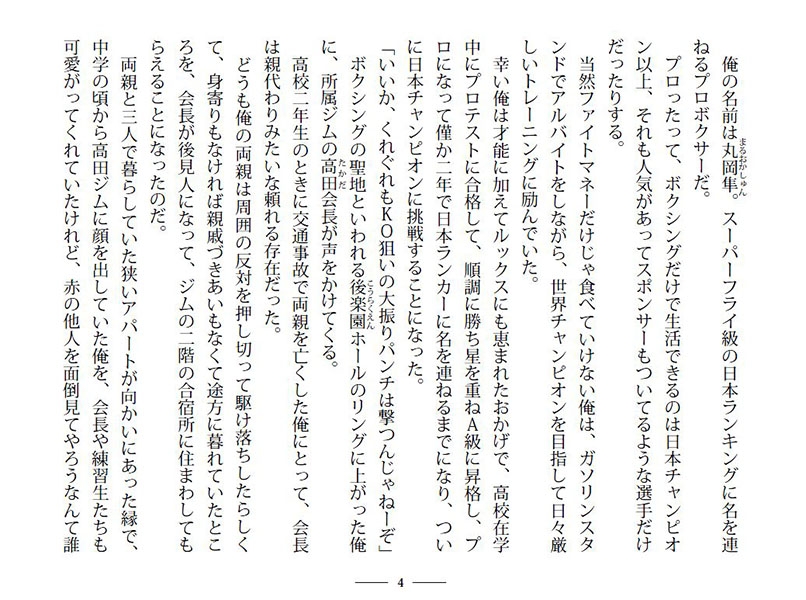 俺の名前は丸岡隼。スーパーフライ級の日本ランキングに名を連
ねるプロボクサーだ。
プロったって、ボクシングだけで生活できるのは日本チャンピオ
ン以上、それも人気があってスポンサーもついてるような選手だけ
だったりする。
当然ファイトマネーだけじゃ食べていけない俺は、ガソリンスタ
ンドでアルバイトをしながら、世界チャンピオンを目指して日々厳
しいトレーニングに励んでいた。
幸い俺は才能に加えてルックスにも恵まれたおかげで、高校在学
中にプロテストに合格して、順調に勝ち星を重ねA級に昇格し、プ
ロになって僅か二年で日本ランカーに名を連ねるまでになり、つい
に日本チャンピオンに挑戦することになった。
「いいか、くれぐれもKO狙いの大振りパンチは撃つんじゃねーぞ」
ボクシングの聖地といわれる後楽園ホールのリングに上がった俺
に、所属ジムの高田会長が声をかけてくる。
高校二年生のときに交通事故で両親を亡くした俺にとって、会長
は親代わりみたいな頼れる存在だった。
どうも俺の両親は周囲の反対を押し切って駆け落ちしたらしく
て、身寄りもなければ親戚づきあいもなくて途方に暮れていたとこ
ろを、会長が後見人になって、ジムの二階の合宿所に住まわしても
らえることになったのだ。
両親と三人で暮らしていた狭いアパートが向かいにあった縁で、
中学の頃から高田ジムに顔を出していた俺を、会長や練習生たちも
可愛がってくれていたけれど、赤の他人を面倒見てやろうなんて誰
まるおかしゅん
こうらくえん
たかだ
4